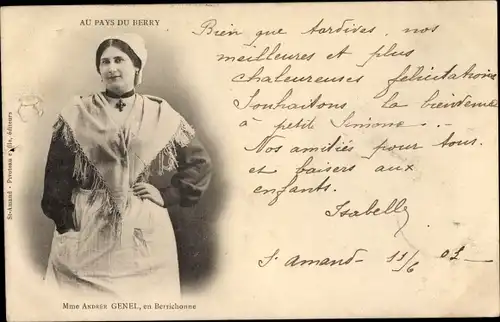 AU PAYS DU BERRY
Bien que tardives, nos
meilleures et plus
chaleureuses félicitations
Souhaitons la bienvenue
à petit Simone.
Nos amitiés pour tous.
et baisers aux
enfants.
Isabelle
St Amand 11/6 02
St-Amand - Pivoteau & fils, éditeurs
Mme ANDRÉE GENEL, en Berrichonne